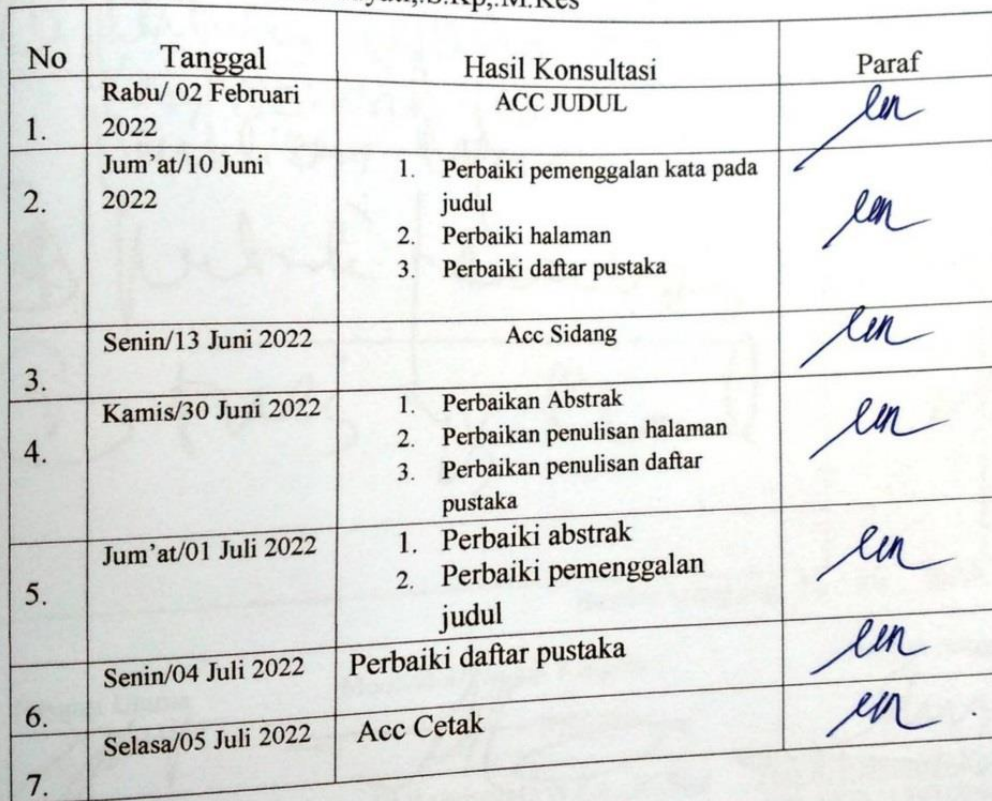 S.Kp,.M.Kes
No Tanggal Hasil Konsultasi Paraf
Rabu/ 02 Februari ACC JUDUL
1. 2022
Jum'at/10 Juni 1. Perbaiki pemenggalan kata pada
2. 2022 judul
2. Perbaiki halaman
3. Perbaiki daftar pustaka
Senin/13 Juni 2022 Acc Sidang
3.
Kamis/30 Juni 2022 1. Perbaikan Abstrak
4. 2. Perbaikan penulisan halaman
3. Perbaikan penulisan daftar
pustaka
Jum'at/01 Juli 2022 1. Perbaiki abstrak
5. 2. Perbaiki pemenggalan
judul
Senin/04 Juli 2022 Perbaiki daftar pustaka
6.
Selasa/05 Juli 2022 Acc Cetak
7.